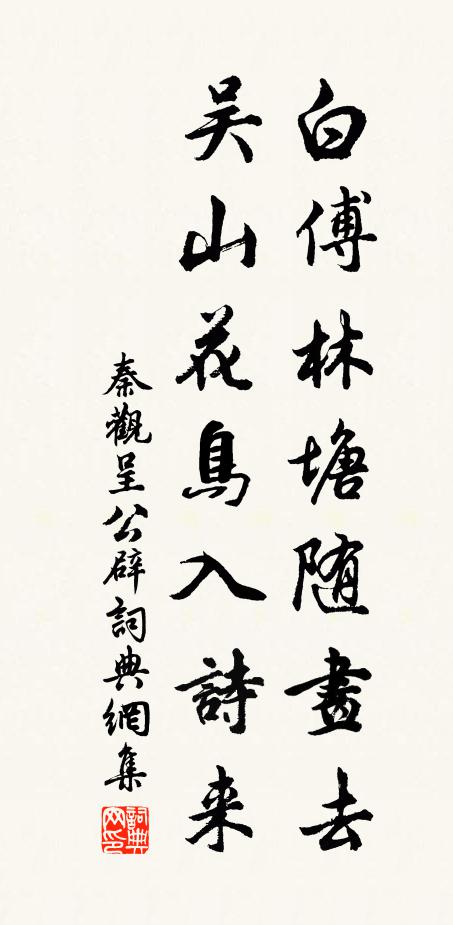 白傅林塘随畫去
吴山花鳥入詩来
秦觀呈公辟詞典網集
詞典网印